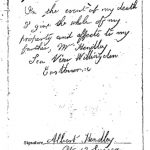 In the event of my death
I give the whole of my
property and effects to my
mother, Mrs Hendley
Sea View Willingdon
Eastbourne
Signature Albert Hendley